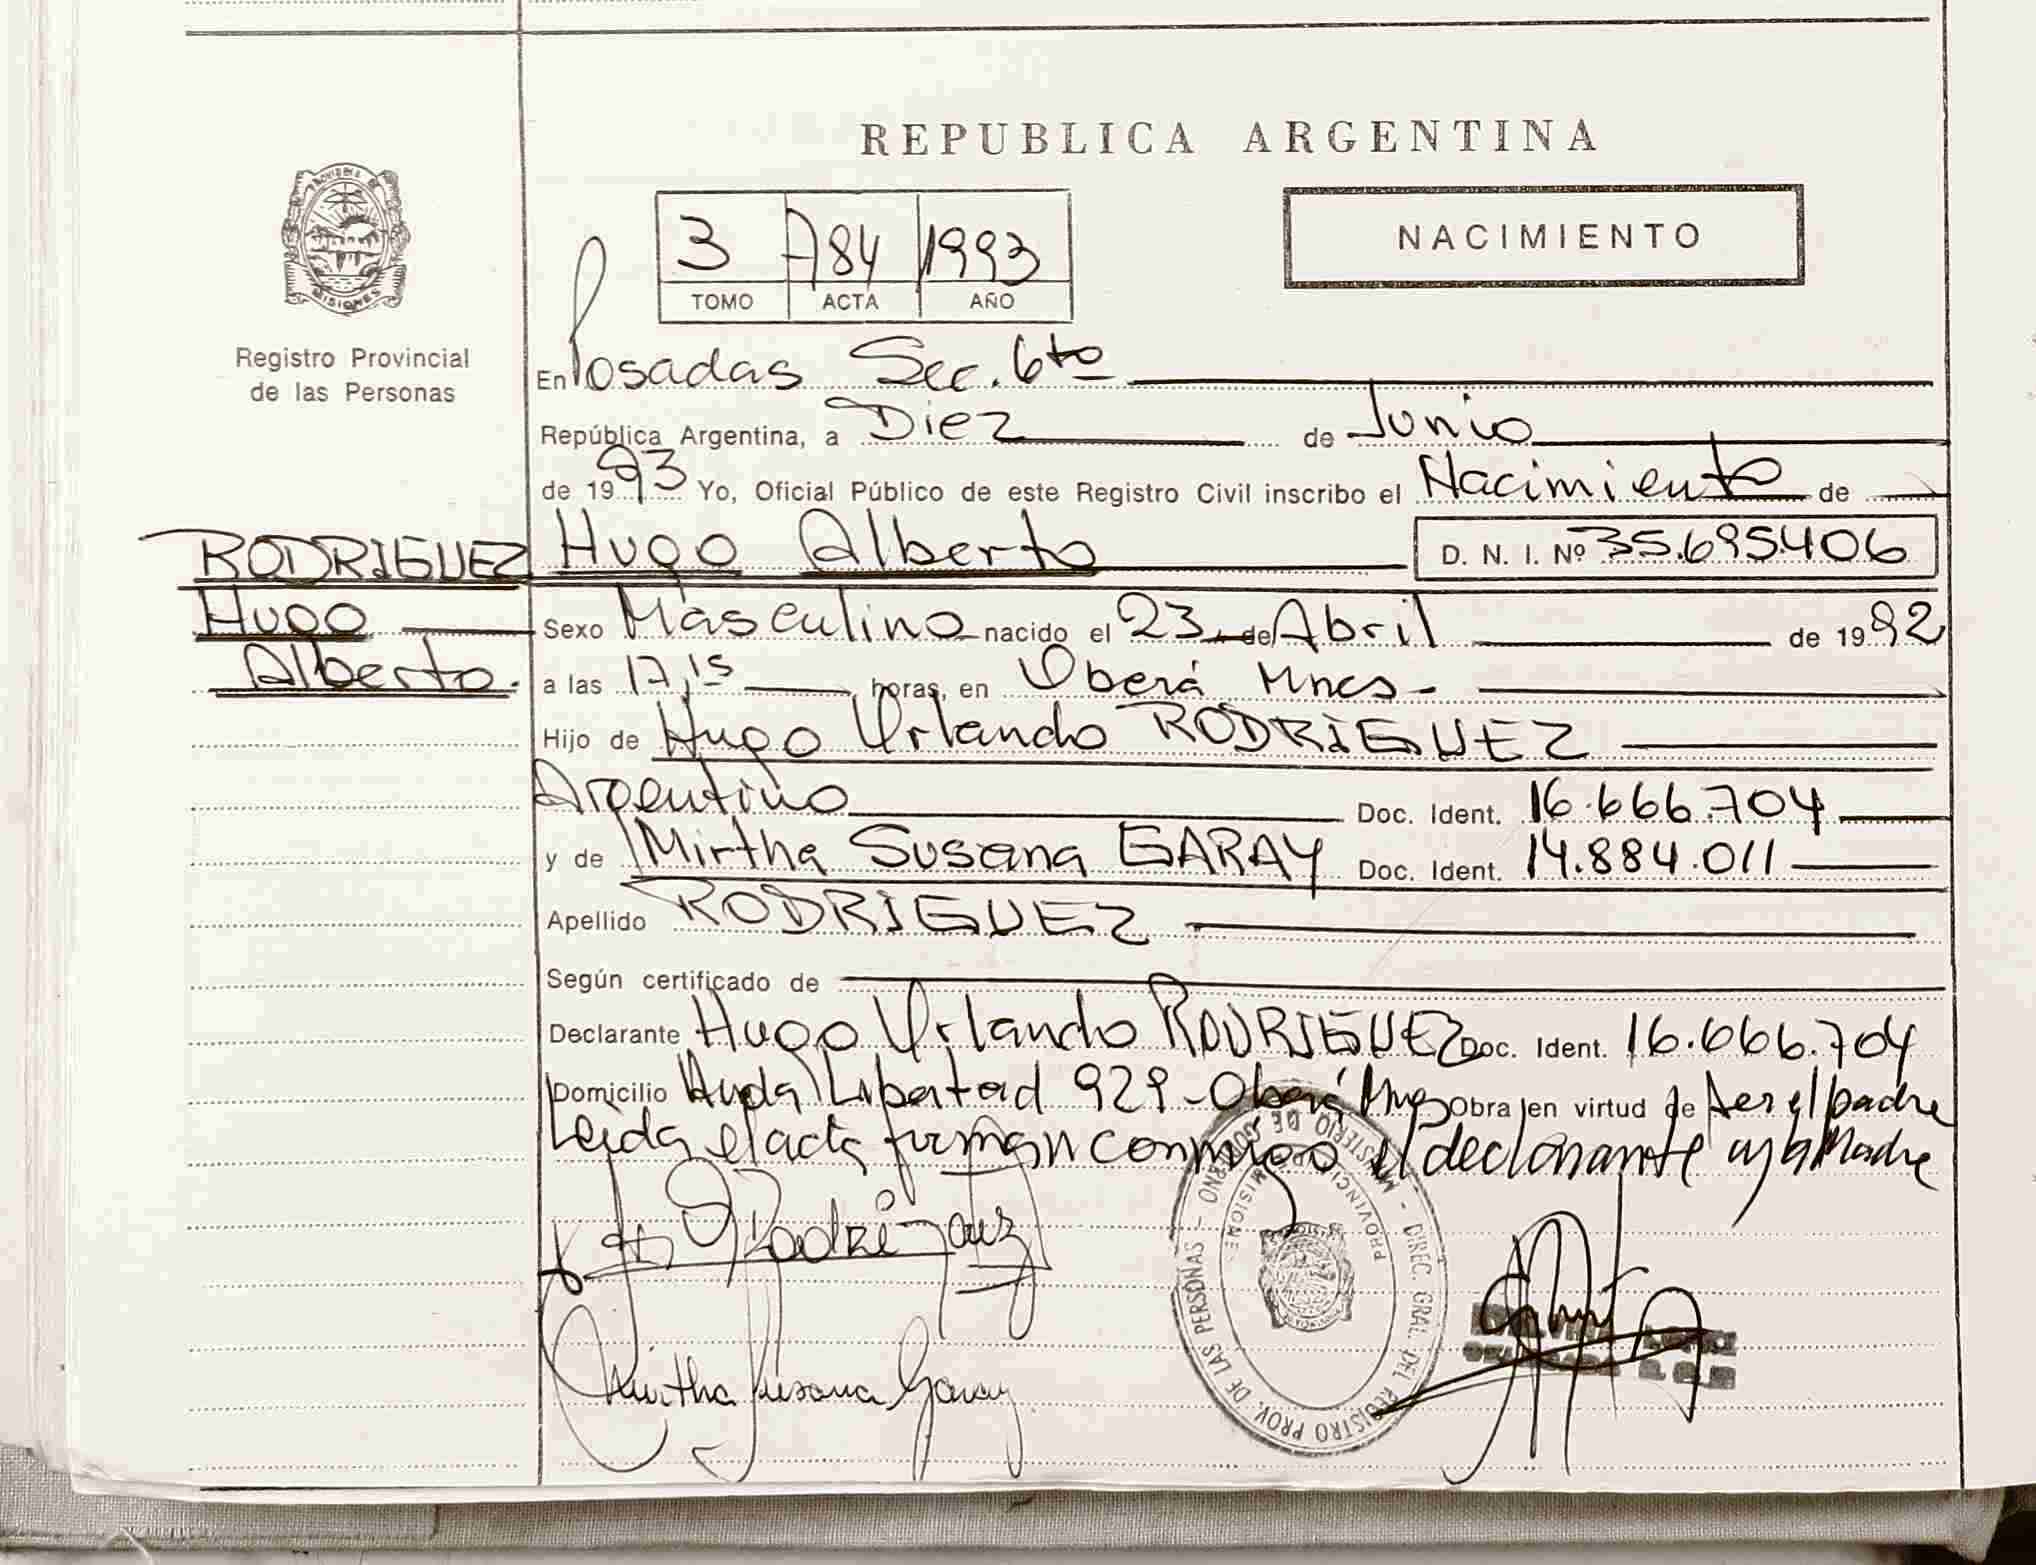 REPUBLICA ARGENTINA
PROVINCIA DE
MISIONES
Registro Provincial
de las Personas
3 784 1993
TOMO ACTA AÑO
NACIMIENTO
En Posadas Sec. 6to
República Argentina, a Diez de Junio
de 1993 Yo, Oficial Público de este Registro Civil inscribo el Nacimiento de
RODRIGUEZ Hugo Alberto D. N. I. Nº 35.695.406
Hugo Sexo Masculino nacido el 23 de Abril de 1992
Alberto. a las 17,15 horas, en Oberá Mnes.
Hijo de Hugo Orlando RODRIGUEZ
Argentino Doc. Ident. 16.666.704
y de Mirtha Susana GARAY Doc. Ident. 14.884.011
Apellido RODRIGUEZ
Según certificado de
Declarante Hugo Orlando RODRIGUEZ Doc. Ident. 16.666.704
Domicilio Avda Libertad 929 - Oberá Mnes Obra en virtud de ser el padre
Leida el acta firman conmigo el declarante y la Madre
Rodriguez
Mirtha Susana Garay
MINISTERIO DE GOBIERNO - DIREC. GRAL. DEL REGISTRO PROV. DE LAS PERSONAS -
PROVINCIA DE MISIONES